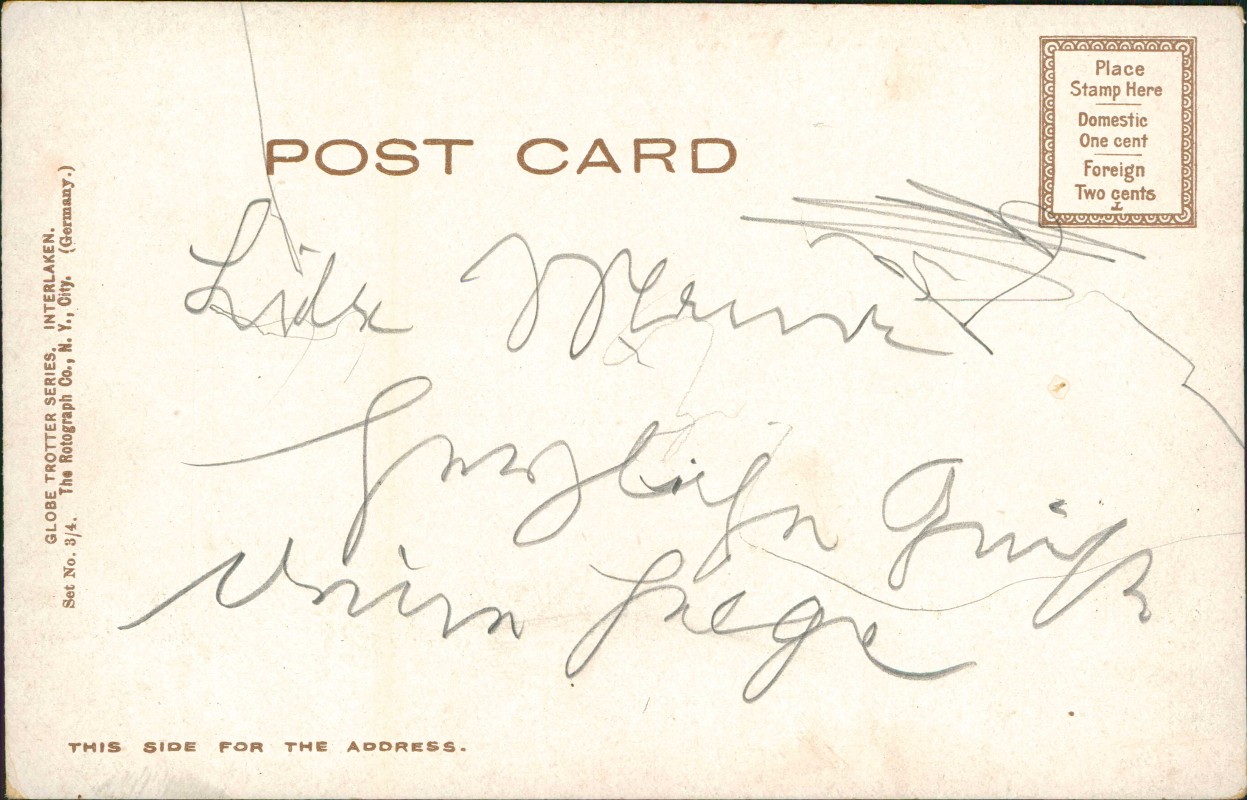 POST CARD
Place
Stamp Here
Domestic
One cent
Foreign
Two cents
GLOBE TROTTER SERIES. INTERLAKEN.
Set No. 3/4. The Rotograph Co., N. Y., City. (Germany.)
herzlichen Gruß
THIS SIDE FOR THE ADDRESS.